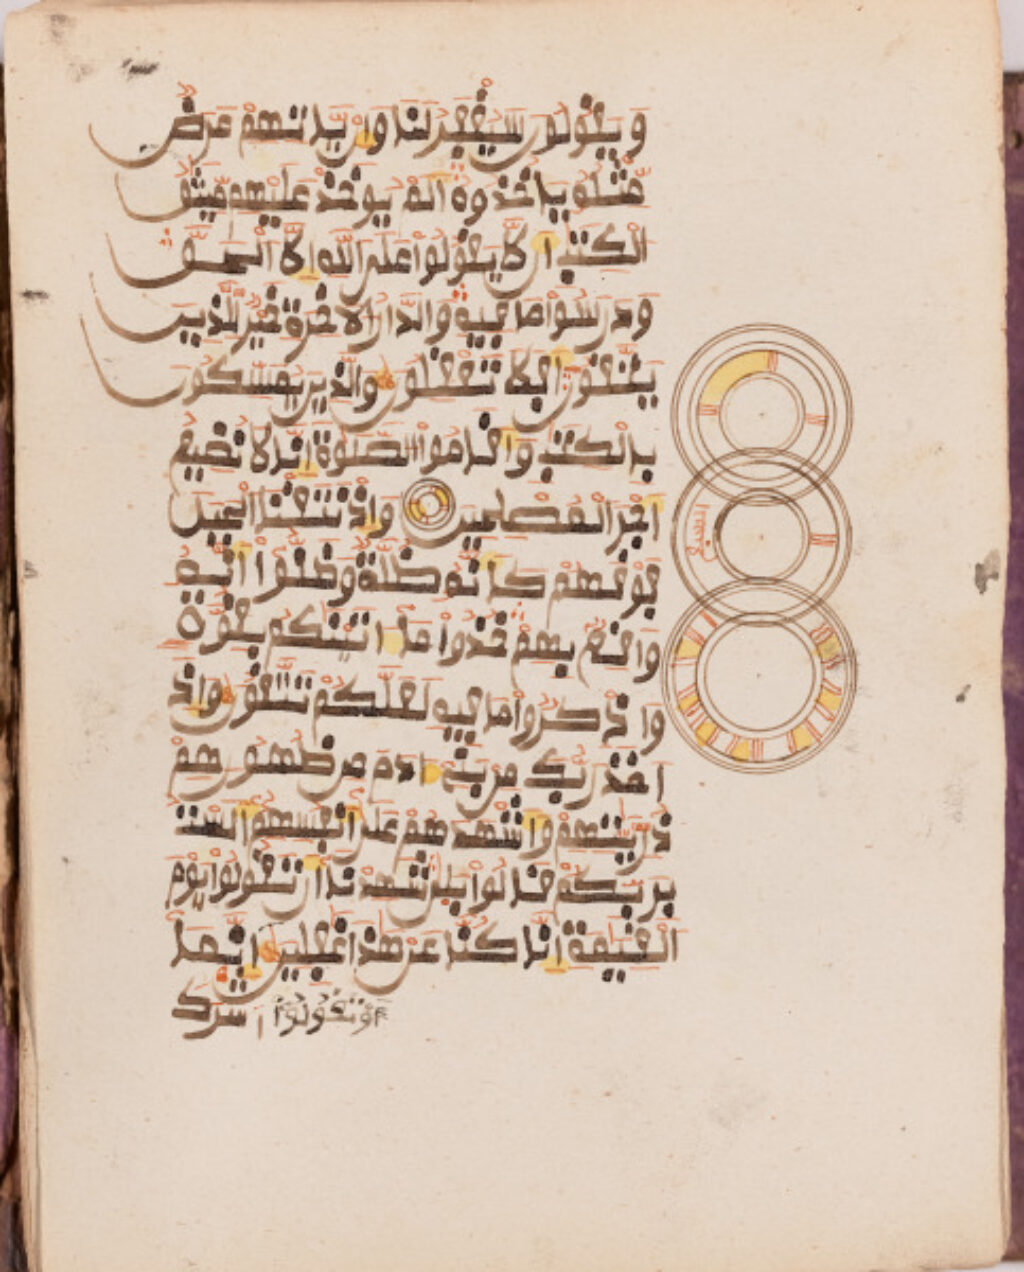 ويقولون سيغفر لنا وإن ياتهم عرض
مثله ياخذوه ألم يوخذ عليهم ميثق
الكتب أن لا يقولوا على الله إلا الحق
ودرسوا ما فيه والدار الاخرة خير للذين
يتقون أفلا تعقلون والذين يمسكون
بالكتب وأقاموا الصلوة إنا لا نضيع
أجر المصلحين وإذ نتقنا الجبل
فوقهم كأنه ظلة وظنوا أنه
واقع بهم خذوا ما ءاتينكم بقوة
واذكروا ما فيه لعلكم تتقون وإذ
أخذ ربك من بني ءادم من ظهورهم
ذريتهم وأشهدهم على أنفسهم ألست
بربكم قالوا بلى شهدنا أن تقولوا يوم
القيمة إنا كنا عن هذا غفلين إنما
أو تقولوا أشرك